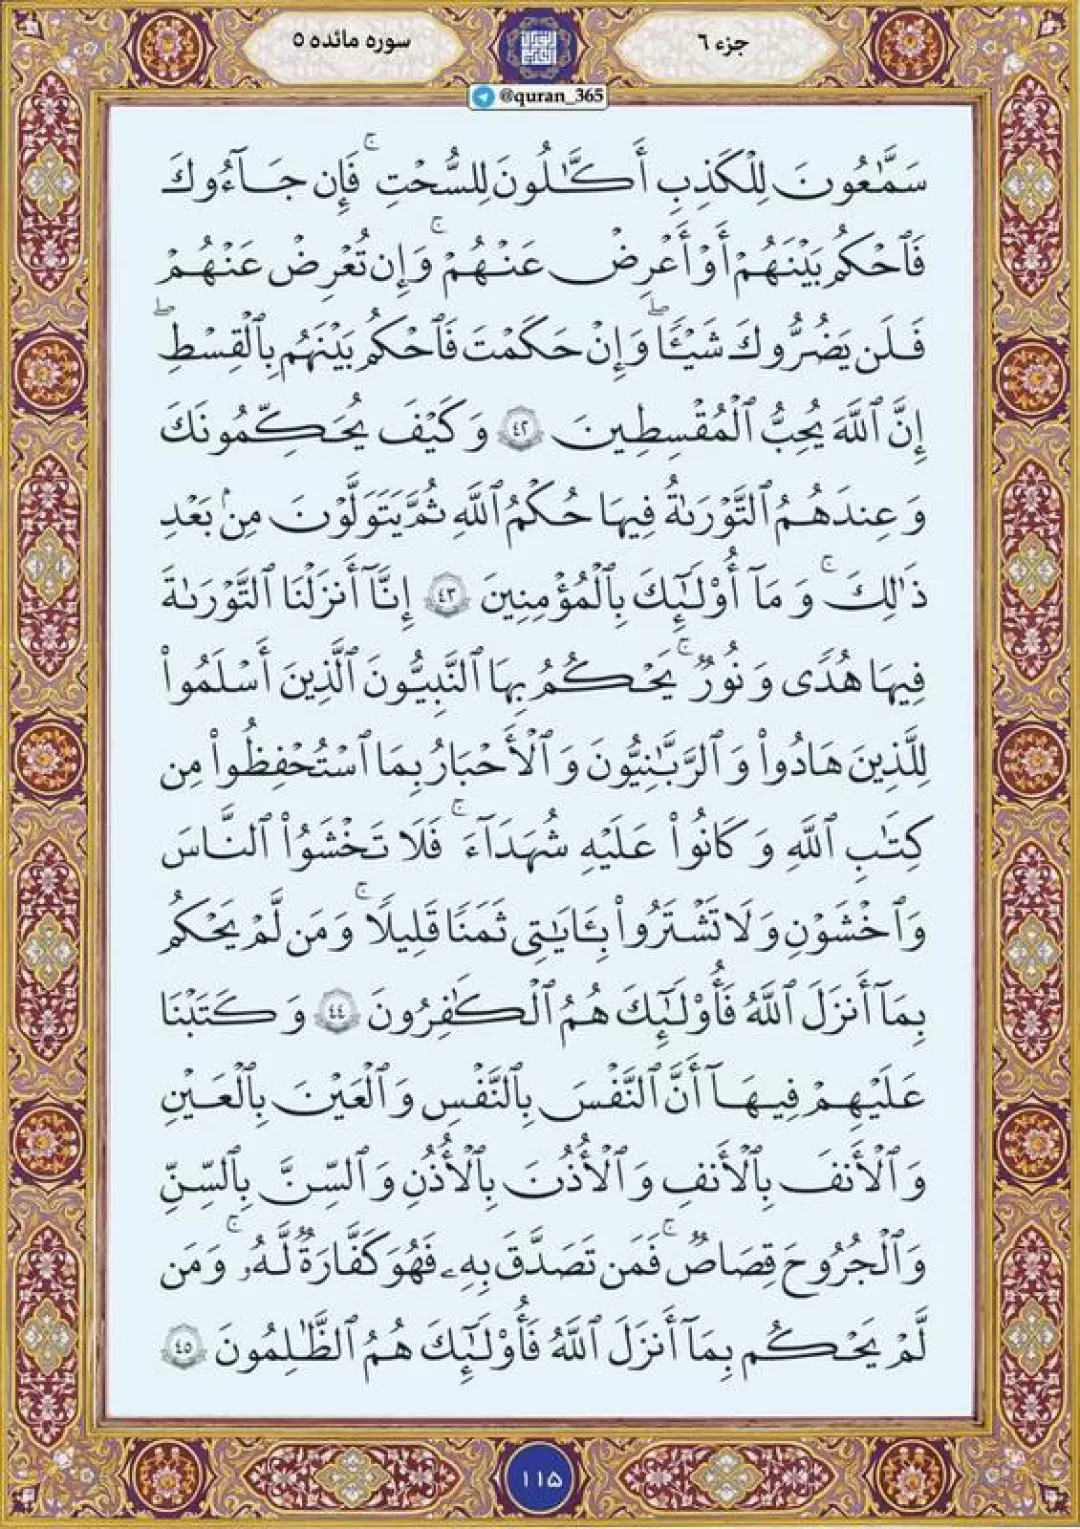 جزء ۶
سوره مائده ۵
@quran_365
سَمَّـٰعُونَ لِلْكَذِبِ أَكَّـٰلُونَ لِلسُّحْتِ ۚ فَإِن جَآءُوكَ
فَٱحْكُم بَيْنَهُمْ أَوْ أَعْرِضْ عَنْهُمْ ۚ وَإِن تُعْرِضْ عَنْهُمْ
فَلَن يَضُرُّوكَ شَيْـًٔا ۖ وَإِنْ حَكَمْتَ فَٱحْكُم بَيْنَهُم بِٱلْقِسْطِ ۖ
إِنَّ ٱللَّهَ يُحِبُّ ٱلْمُقْسِطِينَ ٤٢ وَكَيْفَ يُحَكِّمُونَكَ
وَعِندَهُمُ ٱلتَّوْرَىٰةُ فِيهَا حُكْمُ ٱللَّهِ ثُمَّ يَتَوَلَّوْنَ مِنۢ بَعْدِ
ذَٰلِكَ ۚ وَمَآ أُو۟لَـٰٓئِكَ بِٱلْمُؤْمِنِينَ ٤٣ إِنَّآ أَنزَلْنَا ٱلتَّوْرَىٰةَ
فِيهَا هُدًى وَنُورٌ ۚ يَحْكُمُ بِهَا ٱلنَّبِيُّونَ ٱلَّذِينَ أَسْلَمُوا۟
لِلَّذِينَ هَادُوا۟ وَٱلرَّبَّـٰنِيُّونَ وَٱلْأَحْبَارُ بِمَا ٱسْتُحْفِظُوا۟ مِن
كِتَـٰبِ ٱللَّهِ وَكَانُوا۟ عَلَيْهِ شُهَدَآءَ ۚ فَلَا تَخْشَوُا۟ ٱلنَّاسَ
وَٱخْشَوْنِ وَلَا تَشْتَرُوا۟ بِـَٔايَـٰتِى ثَمَنًا قَلِيلًا ۚ وَمَن لَّمْ يَحْكُم
بِمَآ أَنزَلَ ٱللَّهُ فَأُو۟لَـٰٓئِكَ هُمُ ٱلْكَـٰفِرُونَ ٤٤ وَكَتَبْنَا
عَلَيْهِمْ فِيهَآ أَنَّ ٱلنَّفْسَ بِٱلنَّفْسِ وَٱلْعَيْنَ بِٱلْعَيْنِ
وَٱلْأَنفَ بِٱلْأَنفِ وَٱلْأُذُنَ بِٱلْأُذُنِ وَٱلسِّنَّ بِٱلسِّنِّ
وَٱلْجُرُوحَ قِصَاصٌ ۚ فَمَن تَصَدَّقَ بِهِۦ فَهُوَ كَفَّارَةٌ لَّهُۥ ۚ وَمَن
لَّمْ يَحْكُم بِمَآ أَنزَلَ ٱللَّهُ فَأُو۟لَـٰٓئِكَ هُمُ ٱلظَّـٰلِمُونَ ٤٥
۱۱۵